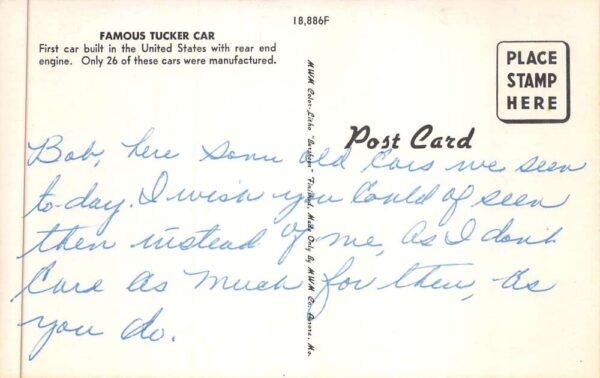 18,886F
FAMOUS TUCKER CAR
First car built in the United States with rear end
engine. Only 26 of these cars were manufactured.
PLACE
STAMP
HERE
Post Card
MWM Color-Litho "Ambeau" Finished. Made Only By MWM Co. Aurora, Mo.
Bob, here some old cars we seen
to-day. I wish you could of seen
then instead of me, as I don't
Care as much for then, as
you do.